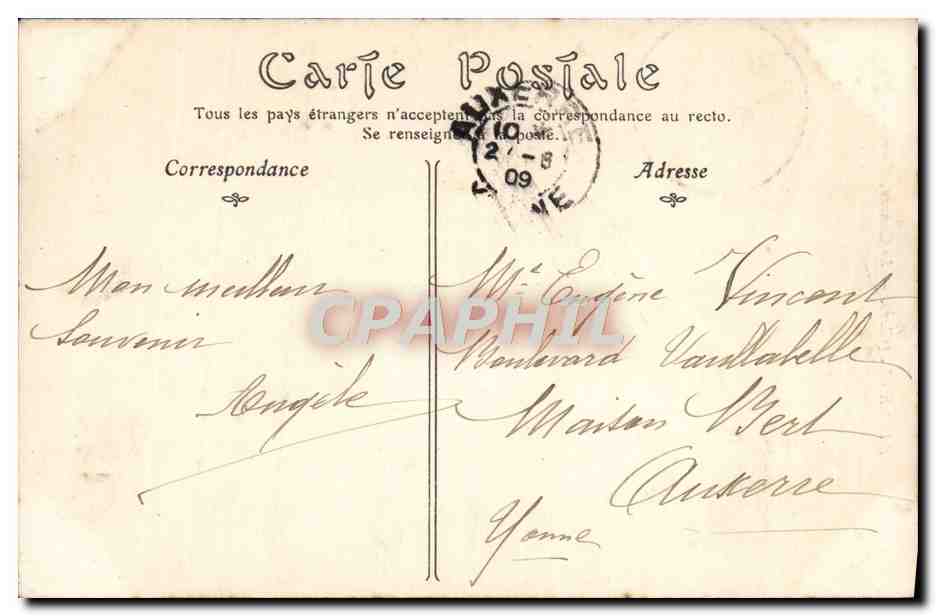 Carte Postale
Tous les pays étrangers n'acceptent pas la correspondance au recto.
Se renseigner à la poste.
AUXERRE
10
2 -8
09
YONNE
Correspondance
Adresse
Mon meilleur
Souvenir
Angèle
Mr Eugène Vincent
Boulevard Vaulabelle
Maison Bert
Auxerre
Yonne
CPAPHIL